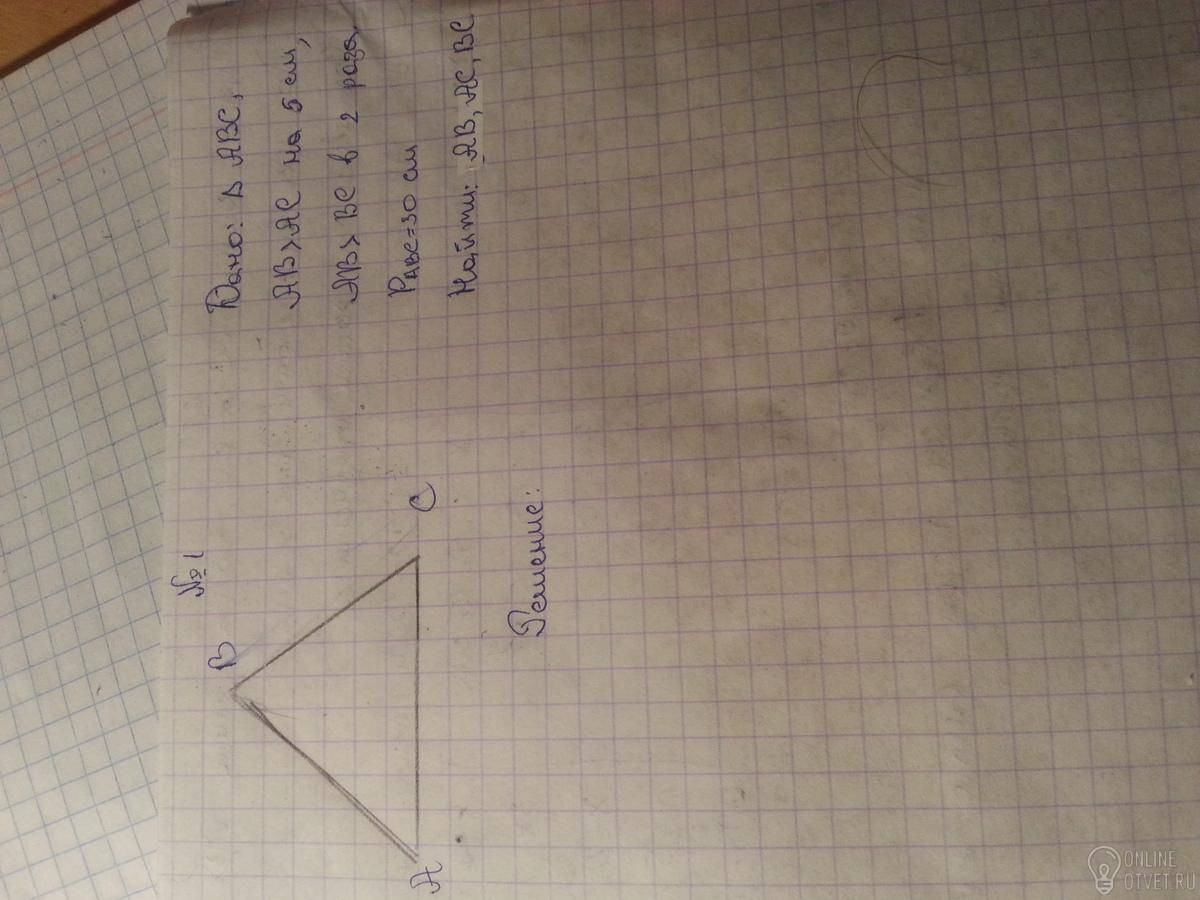 № 1
B
A
C
Дано: Δ ABC,
AB>AC на 5 см,
AB> BC в 2 раза,
PABC=30 см
Найти: AB, AC, BC
Решение:
ONLINE
OTVET.RU